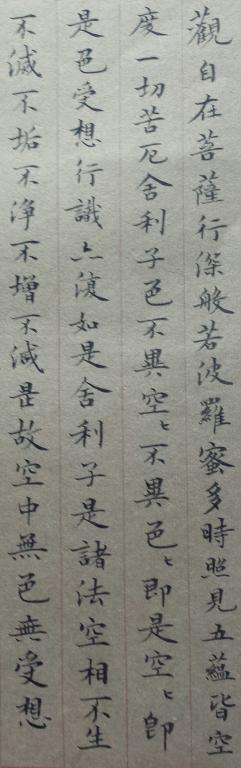 觀自在菩薩行深般若波羅蜜多時照見五蘊皆空
度一切苦厄舍利子色不異空〻不異色〻即是空〻即
是色受想行識亦復如是舍利子是諸法空相不生
不滅不垢不淨不增不減是故空中無色無受想